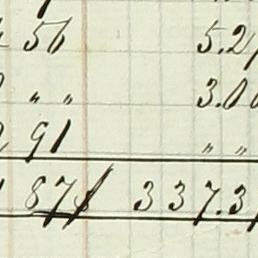 56 5.2
„ „ 3.0
91 „ „
87 337.3